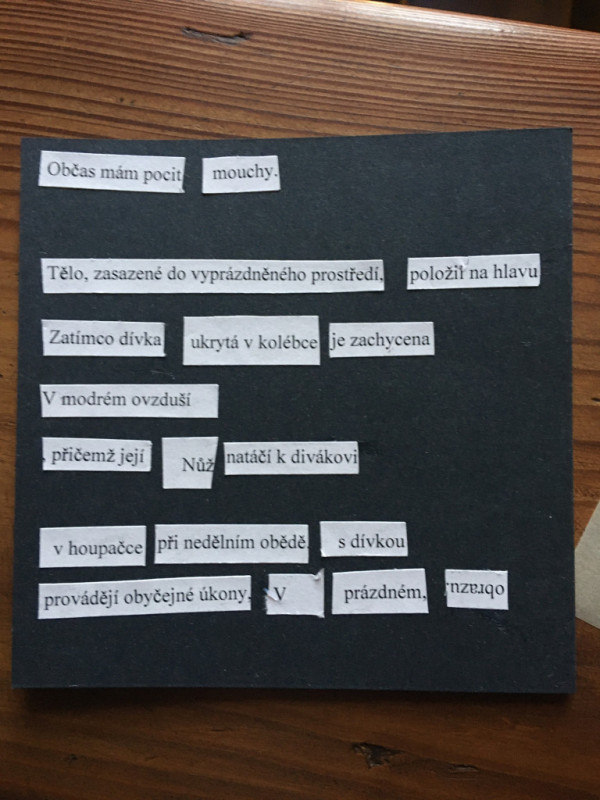 Občas mám pocit mouchy.
Tělo, zasazené do vyprázdněného prostředí, položil na hlavu
Zatímco dívka ukrytá v kolébce je zachycena
V modrém ovzduší
, přičemž její Nůž natáčí k divákovi
v houpačce při nedělním obědě, s dívkou
provádějí obyčejné úkony, V prázdném, obrazu.